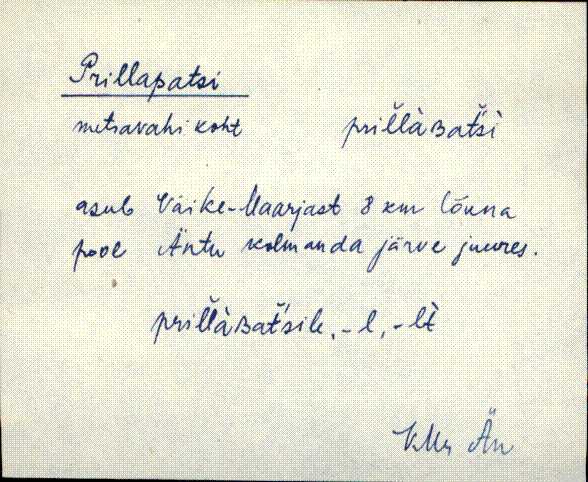 Prillapatsi
metsavahi koht pril̆l̆àʙat̆'s̆ì
asub Väike-Maarjast 8 km lõuna
pool Äntu kolmanda järve juures.
pril̆l̆àʙat̆'sile, -l, -lt̀
VMr Än